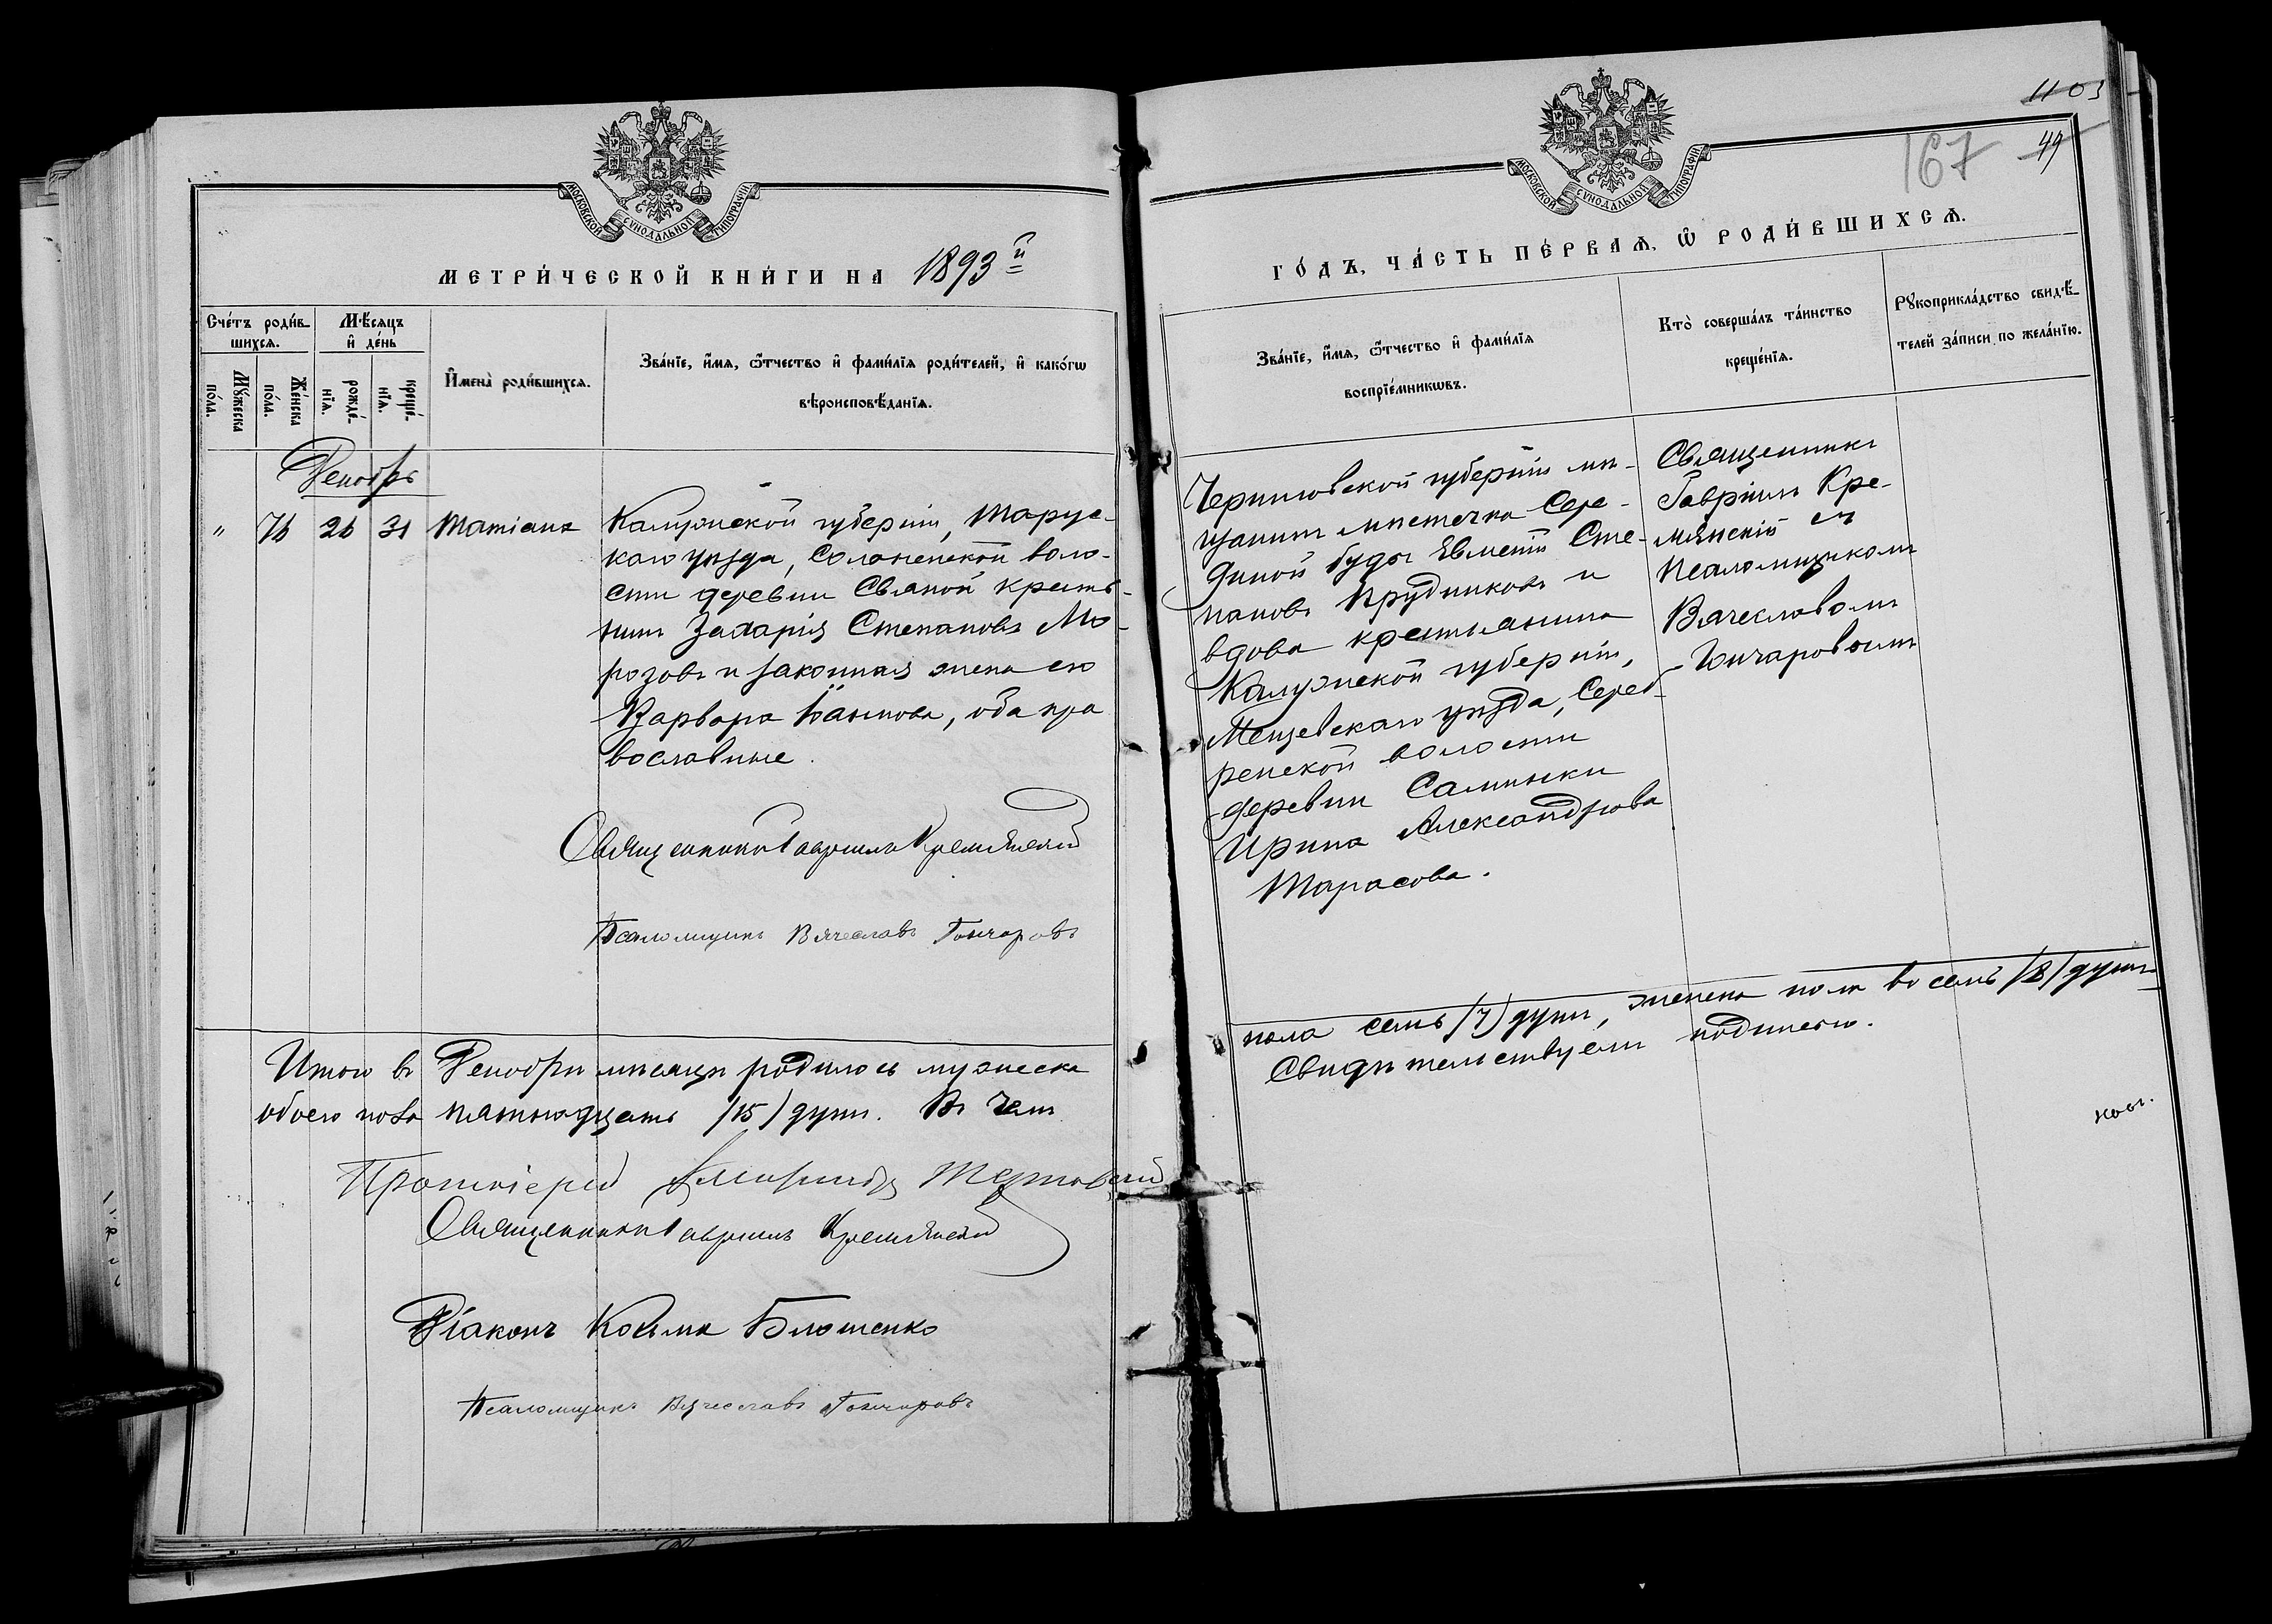 МОСКОВСКОЙ СѴНОДАЛЬНОЙ ТИПОГРАФІИ
МЕТРИ́ЧЕСКОЙ КНИ́ГИ НА 1893й
Сче́тъ роди́в-
шихсѧ.
Мѣ́сѧцъ
и҆ де́нь
Мꙋ́жеска
по́ла.
Же́нска
по́ла.
рожде́-
нїѧ.
креще́-
нїѧ.
И҆мена̀ роди́вшихсѧ.
Зва́нїе, и҆́мѧ, ѻ҆́тчество и҆ фами́лїѧ роди́телей, и҆ како́гѡ
вѣроисповѣ́данїѧ.
Декабрь
" 76 26 31 Татіана
Калужской губерніи, Тарус-
каго уѣзда, Соломенской воло-
сти деревни Свялой крестья-
нинъ Захарія Степановъ Мо-
розовъ и законная жена его
Варвара Іванова, оба пра
вославные.
Священникъ Гавріилъ Кремянскій
Псаломщикъ Вячеславъ Гончаровъ
Итого въ Декабрѣ мѣсяцѣ родилось мужеска
обоего пола пятнадцать /15/ душъ. Въ чемъ
Протоіерей Терновскій
Священникъ Гавріилъ Кремянскій
Діаконъ Косьма Блошенко
Псаломщикъ Вячеславъ Гончаровъ
1103
167
49
МОСКОВСКОЙ СѴНОДАЛЬНОЙ ТИПОГРАФІИ
ГО́ДЪ, ЧА́СТЬ ПЕ́РВАѦ, Ѽ РОДИ́ВШИХСѦ.
Зва́нїе, и҆́мѧ, ѻ҆́тчество и҆ фами́лїѧ
воспрїе́мникѡвъ.
Кто̀ соверша́лъ та́инство
креще́нїѧ.
Рꙋкоприкла́дство свидѣ́-
телей за́писи по жела́нїю.
Черниговской губерніи мѣ-
щанинъ мѣстечка Сере-
диной Буды Евменій Сте-
пановъ Прудниковъ и
вдова крестьянина
Калужской губерніи,
Мещевскаго уѣзда, Сереб-
ренской волости
деревни Салинки
Ирина Александрова
Тарасова.
Священникъ
Гавріилъ Кре-
мянскій съ
псаломщикомъ
Вячеславомъ
Гончаровымъ
пола семь /7/ душъ, женска пола восемь /8/ душъ
Свидѣтельствуемъ подписью.